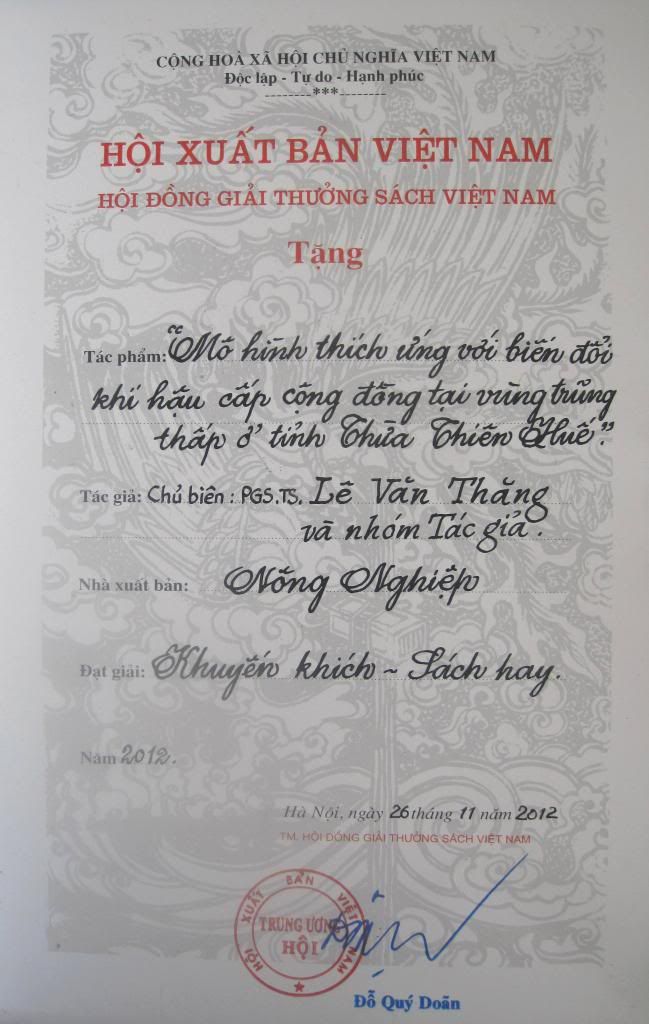 CỘNG HOÀ XÃ HỘI CHỦ NGHĨA VIỆT NAM
Độc lập - Tự do - Hạnh phúc
--------***--------
HỘI XUẤT BẢN VIỆT NAM
HỘI ĐỒNG GIẢI THƯỞNG SÁCH VIỆT NAM
Tặng
Tác phẩm: "Mô hình thích ứng với biến đổi
khí hậu cấp cộng đồng tại vùng trũng
thấp ở tỉnh Thừa Thiên Huế."
Tác giả: Chủ biên: PGS.TS. Lê Văn Thăng
và nhóm Tác giả.
Nhà xuất bản: Nông Nghiệp
Đạt giải: Khuyến khích ~ Sách hay.
Năm 2012.
Hà Nội, ngày 26 tháng 11 năm 2012
TM. HỘI ĐỒNG GIẢI THƯỞNG SÁCH VIỆT NAM
HỘI XUẤT BẢN VIỆT NAM
TRUNG ƯƠNG
HỘI
Đỗ Quý Doãn